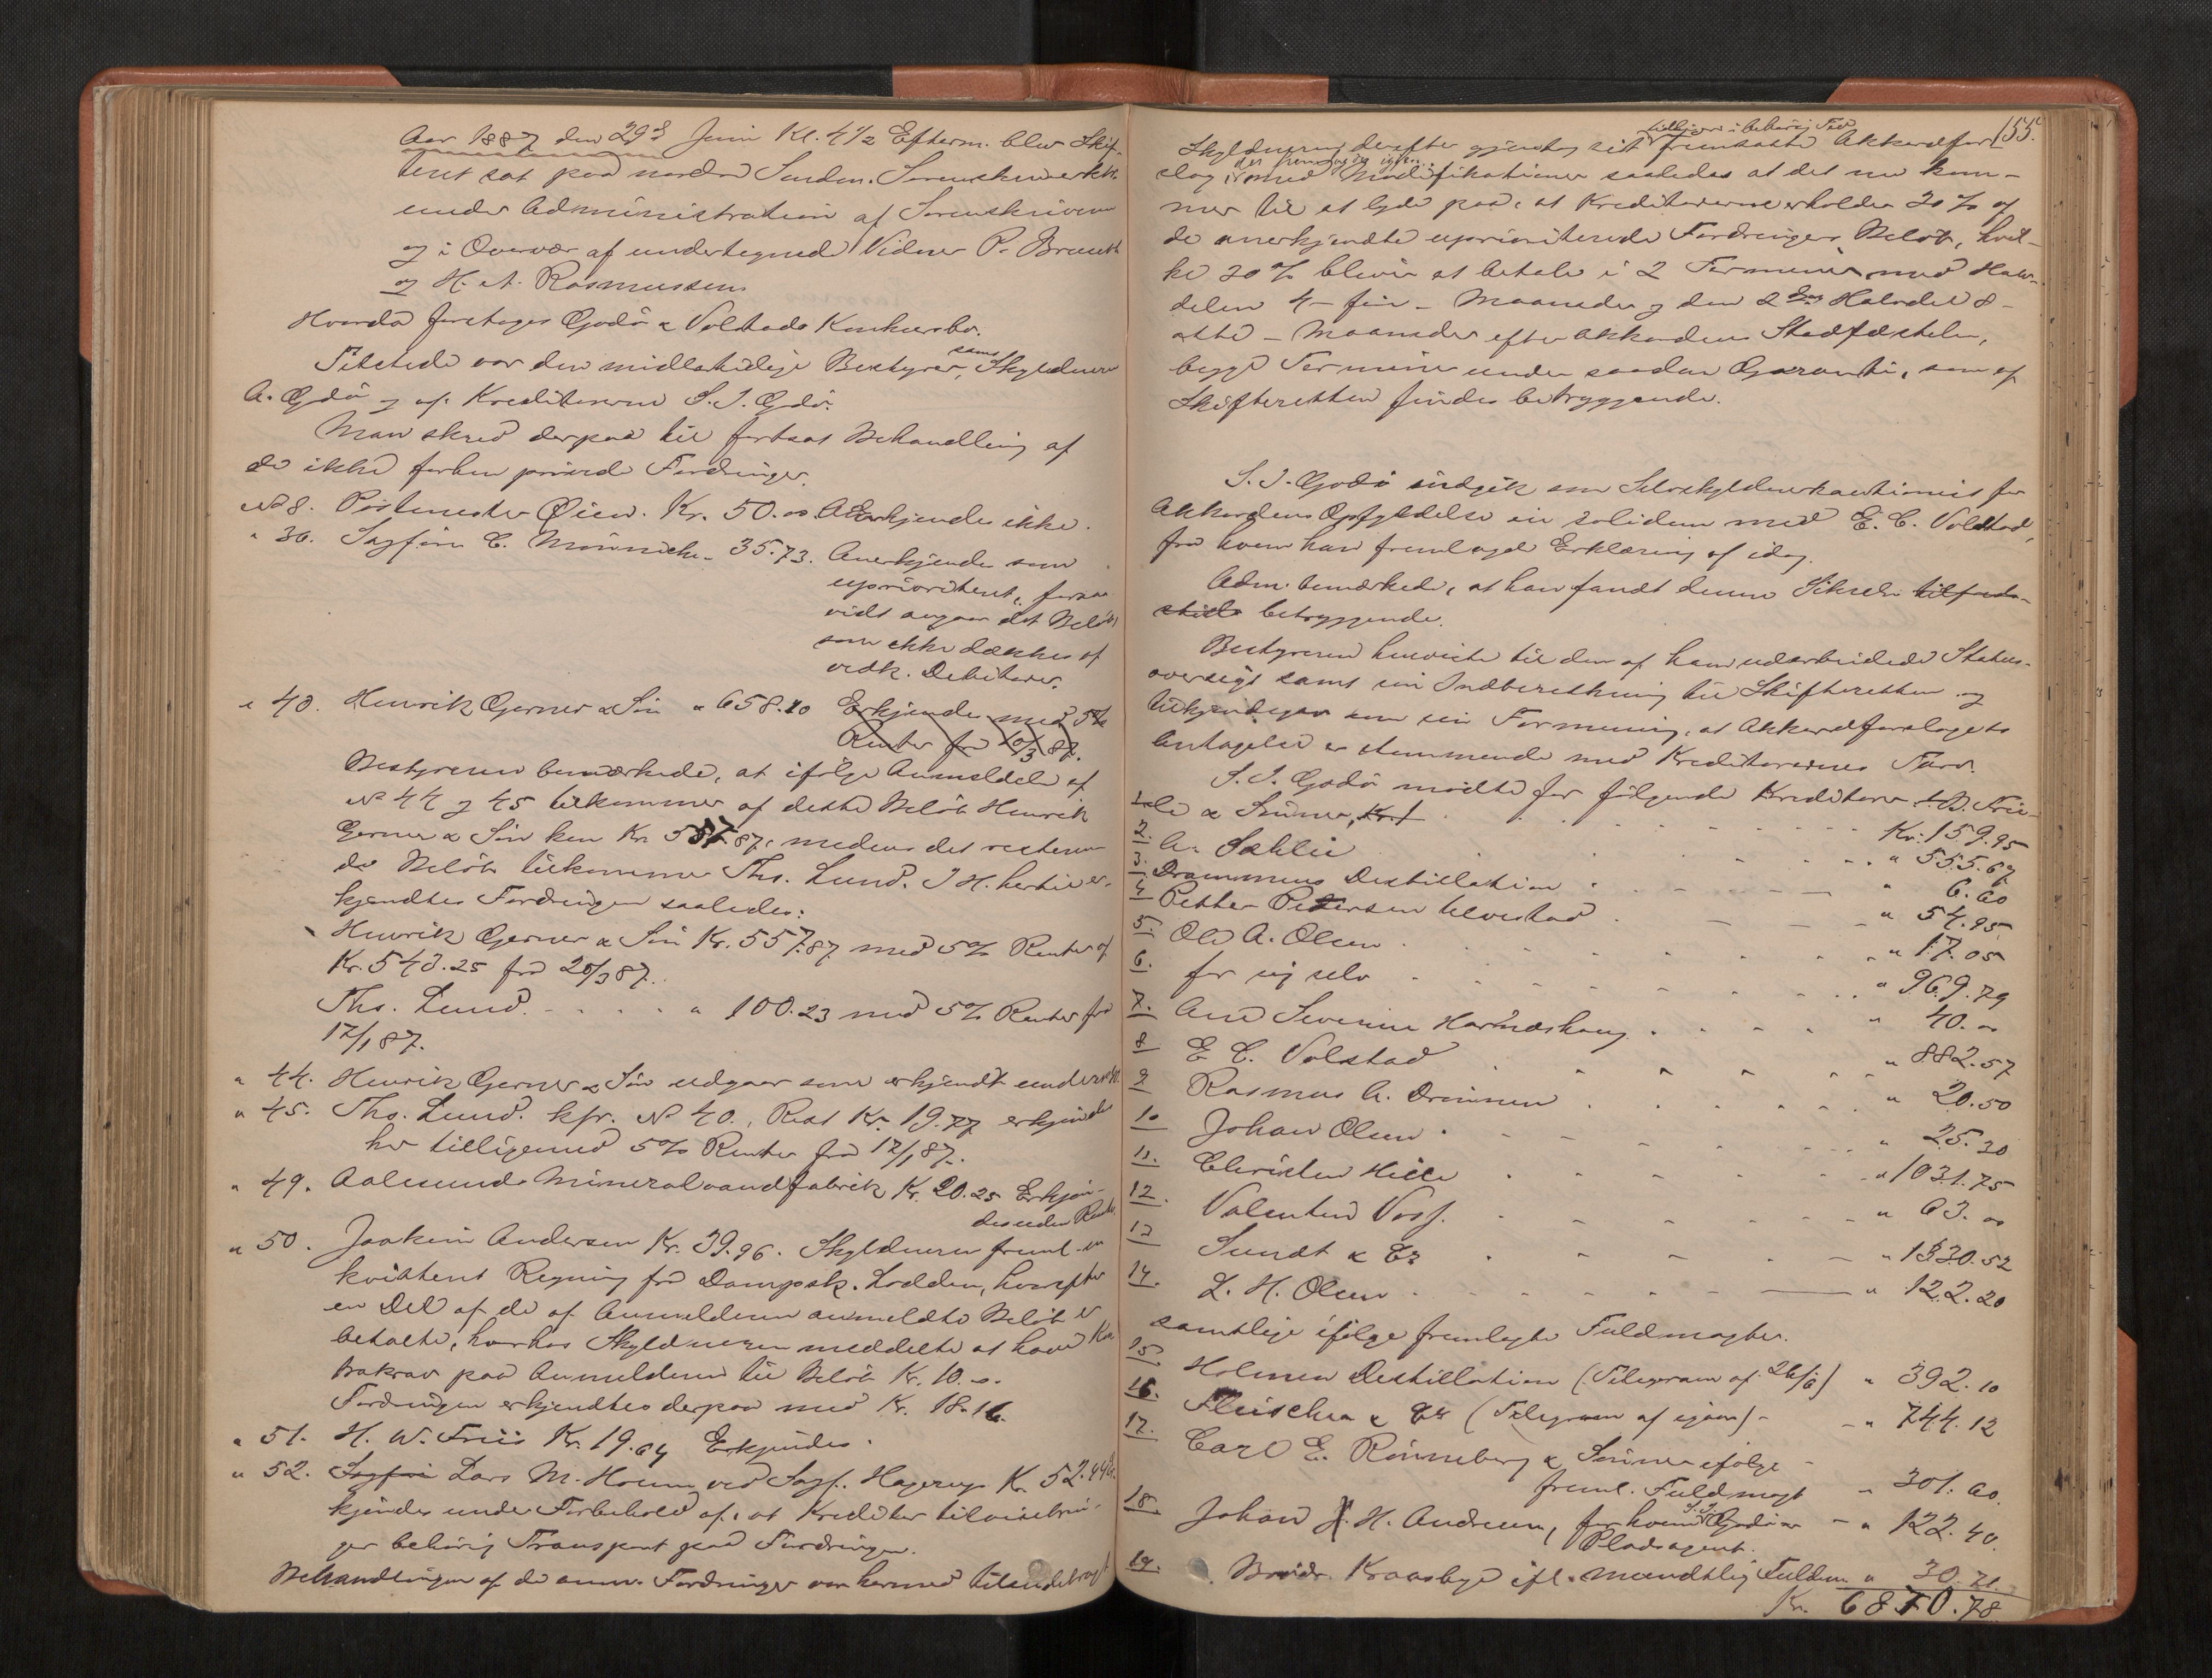 Aar 1887 den 29de Juni Kl. 4 1/2 Efterm. blev Skif-
teret sat paa nordre Søndm. Sorenskriverktr.
under Administration af Sorenskriveren
og i Overvær af undertegnede Vidner P. Brandt
og H. A. Rasmussen
Hvorda foretoges Godö & Volstads Konkursbo.
Tilstede var den midlertidige Bestyrer, samt Skyldneren
A. Godö og af Kreditorerne S. I. Godö.
Man skred derpaa til fortsat Behandling af
de ikke forhen prövede Fordringer.
No 8. Postmester Øien. Kr. 50.00 Erkjendes ikke.
" 36. Sagförer C. Mönniche - 35.73. Anerkjendes som
uprioriteret, forsaa-
vidt angaar det Belöb,
som ikke dækkes af
vedk. Debitorer.
" 40. Henrik Gerner & Sön " 658.10 Erkjendes med 5%
Renter fra 20/3 87.
Bestyreren bemærkede, at ifölge Anmeldelse af
No 44 og 45 tilkommer af dette Belöb Henrik
Gerner & Sön kun Kr. 557.87, medens det resteren-
de Belöb tilkommer Ths. Lund. I H. hertil er-
kjendtes Fordringen saaledes:
Henrik Gerner & Sön Kr. 557.87 med 5% Renter af
Kr. 543.25 fra 20/3 87.
Ths. Lund. - . . . " 100.23 med 5% Renter fra
17/1 87.
" 44. Henrik Gerner & Sön udgaar som erkjendt under No 40.
" 45. Ths. Lund. kfr. No 40., Rest Kr. 19.77 erkjendes
her tilligemed 5% Renter fra 17/1 87.
" 49. Aalesunds Mineralvandfabrik Kr. 20.25 Erkjen-
des uden Rente.
" 50. Joakim Andersen Kr. 39.96. Skyldneren freml. en
kvitteret Regning fra Dampsk. Lodden, hvorefter
en Del af de af Anmelderen anmeldte Belöb er
betalte, hvorhos Skyldneren meddelte at have Kon-
trakrav paa Anmelderen til Belöb Kr. 10.00.
Fordringen erkjendtes derpaa med Kr. 18.16.
" 51. H. W. Friis Kr. 19.64 Erkjendes.
" 52. Sagförer Lars M. Hoem ved Sagf. Hagerup Kr. 52.44 Er-
kjendes under Forbehold af, at Kreditor tilveiebrin-
ger behörig Transport paa Fordringen.
Behandlingen af de anm. Fordringer var hermed tilendebragt
155.
Skyldneren derefter gjentog sit tidligere i behörig Tid fremsatte Akkordfor-
slag med Modifikationer saaledes at det nu kom-
mer til at lyde paa, at Kreditorerne erholder 30% af
de anerkjendte uprioriterede Fordringers Belöb, hvil-
ke 30% bliver at betale i 2 Terminer med Halv-
delen 4 - fire - Maaneder og den 2den Halvdel 8 -
otte - Maaneder efter Akkordens Stadfæstelse,
begge Terminer under saadan Garanti, som af
Skifteretten findes betryggende.
S. I. Godö indgik som Selvskyldnerkautionist for
Akkordens Opfyldelse in solidum med E. C. Volstad,
fra hvem han fremlagde Erklæring af idag.
Adm. bemærkede, at han fandt denne Sikkerhed tilfreds-
stillende betryggende.
Bestyreren henviste til den af ham udarbeidede Status-
oversigt samt sin Indberetning til Skifteretten og
tilkjendegav som sin Formening, at Akkordforslagets
Antagelse er stemmende med Kreditorernes Tarv.
S. I. Godö mödte for fölgende Kreditorer 1. B. Frie-
le & Sönner, Kr. 1 . . . Kr. 159.95
2. A. Sahlie " 555.67
3. Drammens Destillation . " 6.60
4. Petter Petersen Ulvestad . " 54.95
5. Ole A. Olsen . " 17.05
6. for sig selv " 969.79
7. Ane Severine Harnæshaug . " 40.00
8 E. C. Volstad " 882.57
9 Rasmus A. Drönnen . " 20.50
10 Johan Olsen . " 25.30
11. Christen Hille " 1031.75
12. Valentin Voss. " 63.00
13 Sundt & Co " 1330.52
14. L. H. Olsen . " 122.20
samtlige ifölge fremlagte Fuldmagter.
15. Holmen Destillation (Telegram af 26/6) " 392.10
16. Fleischer & Co (Telegram af igaar) - " 744.12
17. Carl E. Rönneberg & Sönner ifölge
freml. Fuldmagt " 301.60.
18. Johan H. Andresen, for hvem S. I. Godö er - " 122.40.
Pladsagent.
19. Brödr. Kraasbye ifl. mundtlig Fuldm. " 30.21.
Kr. 6870.78